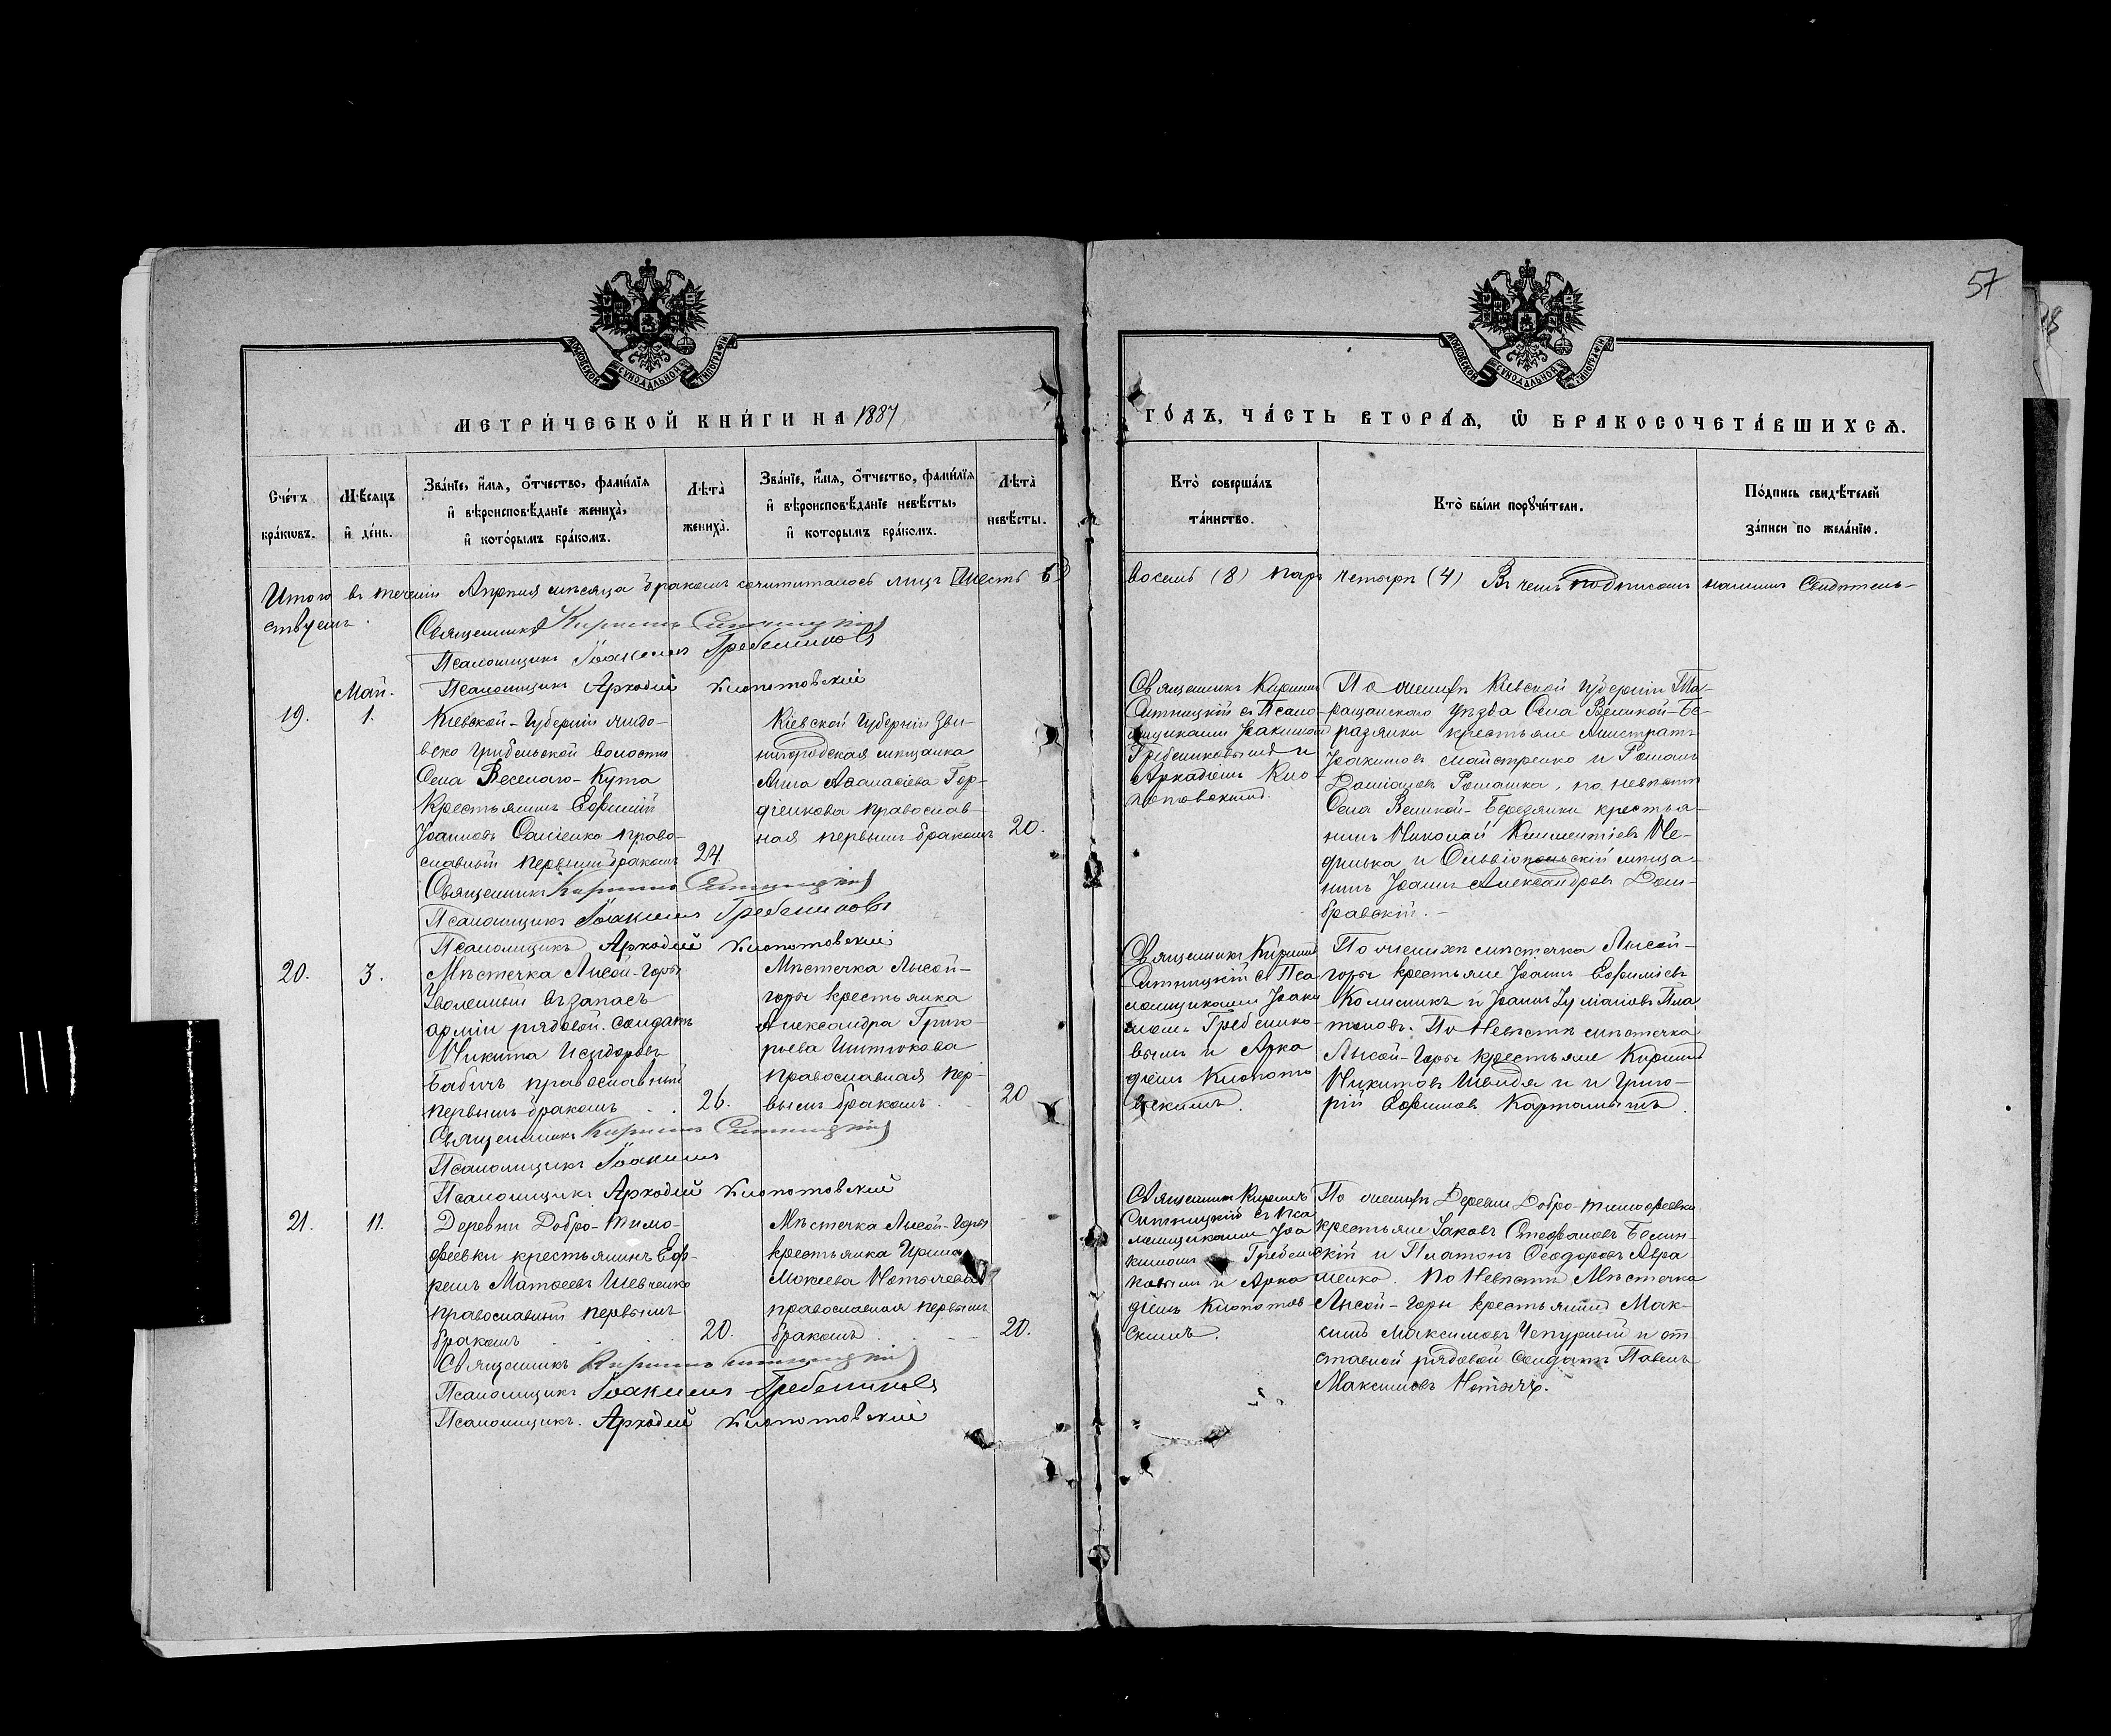 57
МОСКОВСКОЙ СѴНОДАЛЬНОЙ ТИПОГРАФІИ
МОСКОВСКОЙ СѴНОДАЛЬНОЙ ТИПОГРАФІИ
МЕТРИ́ЧЕСКОЙ КНИ́ГИ НА 1887
ГО́ДЪ, ЧА́СТЬ ВТОРА́Ѧ, Ѿ БРАКОСОЧЕТА́ВШИХСѦ.
Сче́тъ бра́кωвъ.
Мѣ́сяцъ и де́нь.
Зва́нїе, и́мя, о́тчество, фами́лїя и вѣроисповѣ́данїе жениха̀, и кото́рымъ бра́комъ.
Лѣ́та жениха̀.
Зва́нїе, и́мя, о́тчество, фами́лїя и вѣроисповѣ́данїе невѣ́сты, и которымъ бра́комъ.
Лѣ́та невѣ́сты.
Кто̀ соверша́лъ та́инство.
Кто̀ бы́ли порꙋчи́тели.
По́дпись свидѣ́телей за́писи по жела́нїю.
Итого въ теченіи Апрѣля мѣсяца бракомъ сочиталось лицъ
восемь (8) паръ четыре (4) Въ чемъ подписомъ нашимъ Свидѣтель-
ствуемъ.
Священникъ Кириллъ Ситницкій
Псаломщикъ Іоакимъ Гребениковъ
Псаломщикъ Аркадій Клопотовскій
19.
Май.
1.
Кіевской-Губерніи
волости
Села Веселаго-Кута
Крестьянинъ Евфимій
Іоанновъ право-
славный первымъ бракомъ
24.
Кіевской Губерніи Зви-
нигородская мѣщанка
Анна Аѳанасіева Гор-
діенкова православ-
ная первымъ бракомъ
20.
Священникъ Кириллъ
Ситницкій съ Псало-
мщиками Іоакимомъ
Гребениковымъ и
Аркадіемъ Кло-
потовскимъ.
По женихѣ Кіевской губерніи Та-
ращанскаго уѣзда Села Великой-Бе-
резянки крестьяне
Іоакимовъ Майстренко и Романъ
Даміановъ Ромашка, по невѣстѣ
Села Великой-Березянки крестья-
нинъ Николай Климентіевъ Не-
дилька и Ольвіопольскій мѣща-
нинъ Іоаннъ Александровъ Дом-
бравскій.
Священникъ Кириллъ Ситницкій
Псаломщикъ Іоакимъ Гребениковъ
Псаломщикъ Аркадій Клопотовскій
20.
3.
Мѣстечка Лисой-Горы
Уволенный въ запасъ
арміи рядовой солдатъ
Никита Исидоровъ
Бабичъ православный
первымъ бракомъ
26.
Мѣстечка Лысой-
горы крестьянка
Александра Григо-
рьева Шитюкова
православная пер-
вымъ бракомъ
20
Священникъ Кириллъ
Ситницкій съ Пса-
ломщиками Іоаки
момъ Гребенико-
вымъ и Арка
діемъ Клопото
вскимъ.
По женихѣ мѣстечка Лысой-
горы крестьяне Іоаннъ Евфиміевъ
Колисникъ и Іоаннъ Іуліановъ Пла
тоновъ. По Невѣстѣ мѣстечка
Лысой-Горы крестьяне Кириллъ
Никитовъ Швыдя и и Григо-
рій Евфимовъ Карталышъ.
Священникъ Кириллъ Ситницкій
Псаломщикъ Іоакимъ
Псаломщикъ Аркадій Клопотовскій
21.
11.
Деревни Добро-Тимо-
феевки крестьянинъ Еф-
ремъ Матѳеевъ Шевченко
православный первымъ
бракомъ
20.
Мѣстечка Лысой-Горы
крестьянка Ирина
Мокіева Нетычева
православная первымъ
бракомъ
20.
Священникъ Кириллъ
Ситницкій съ Пса
ломщиками Іоа
кимомъ Гребени
ковымъ и Арка
діемъ Клопотов
скимъ.
По женихѣ Деревни Добро-Тимофеевки
крестьяне Іаковъ Стефановъ Белин-
скій и Платонъ Ѳеодоровъ Авра
менко. По Невѣстѣ Мѣстечка
Лысой-Горы крестьянинъ Мак-
симъ Максимовъ Чепурный и от-
ставной рядовой солдатъ Павелъ
Максимовъ Нетычъ.
Священникъ Кириллъ Ситницкій
Псаломщикъ Іоакимъ Гребениковъ
Псаломщикъ. Аркадій Клопотовскій